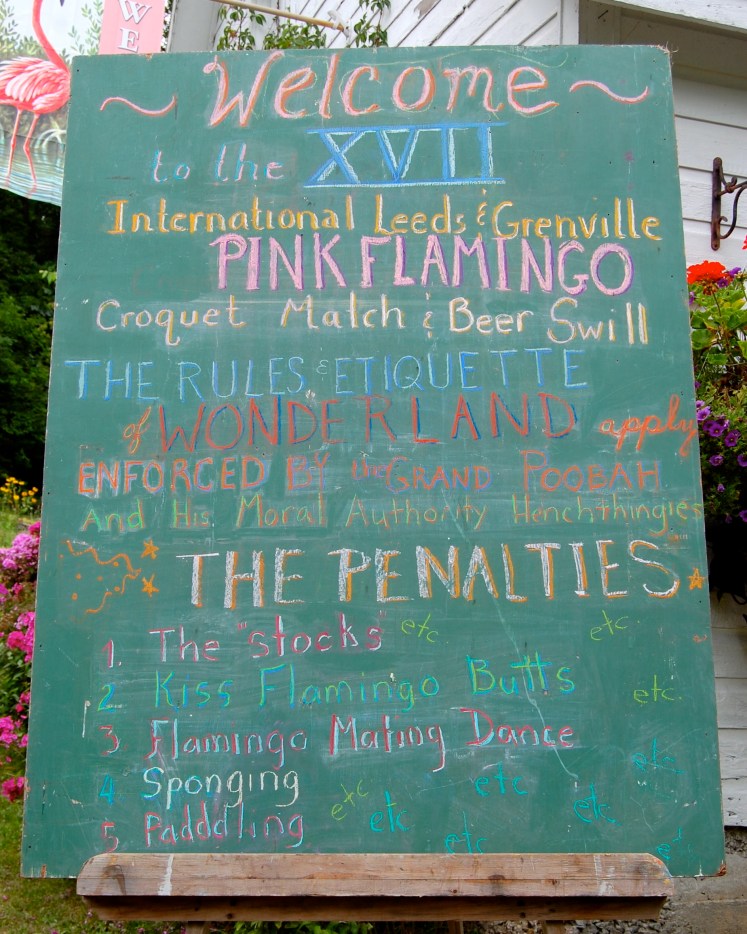 WE
~ Welcome ~
to the XVII
International Leeds & Grenville
PINK FLAMINGO
Croquet Match & Beer Swill
THE RULES & ETIQUETTE
of WONDERLAND apply
ENFORCED BY the GRAND POOBAH
And His Moral Authority Henchthingies
THE PENALTIES
1. The "stocks" etc etc.
2 Kiss Flamingo Butts etc.
3 Flamingo Mating Dance
etc.
4 Sponging etc
5 Padddling etc etc etc etc et